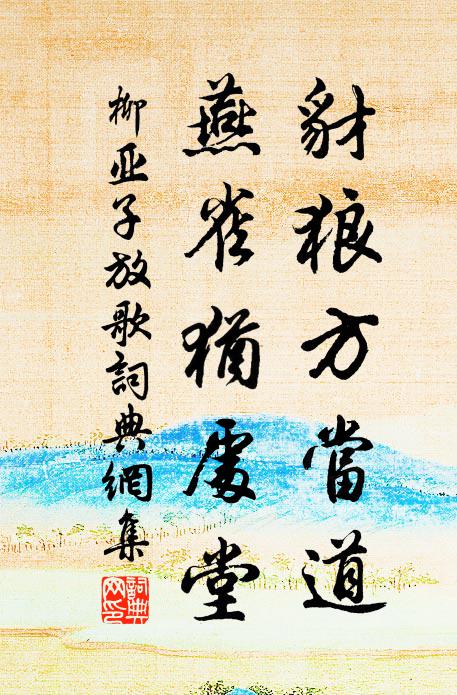 豺狼方當道
燕雀猶處堂
柳亚子放歌詞典網集
詞典網印